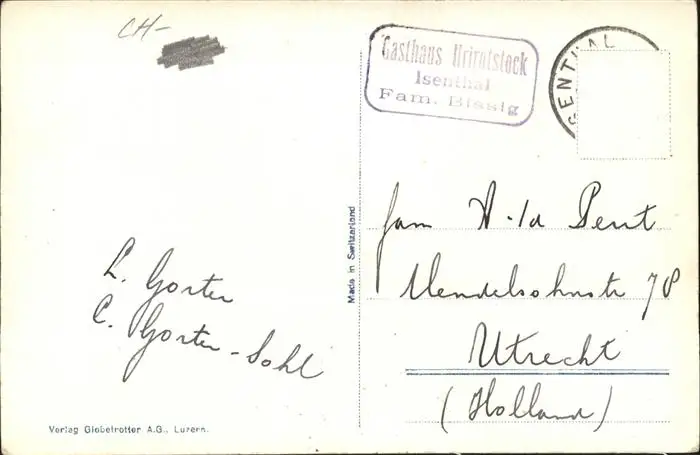 CH-
Gasthaus Urirotstock
Isenthal
Fam. Bissig
SENTHAL
Made in Switzerland
fam A. v/d Pent
Mendelsohnstr 78
Utrecht
(Holland)
L. Gorter
C. Gorter-Sohl
Verlag Globetrotter A.G., Luzern.